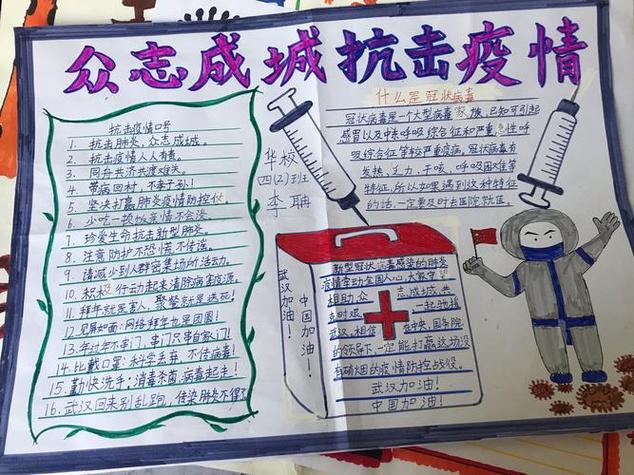 众志成城抗击疫情
抗击疫情口号
1. 抗击肺炎,众志成城。
2. 抗击疫情人人有责。
3. 同舟共济共渡难关。
4. 带病回村,不孝子孙!
5. 坚决打赢肺炎疫情防控仗。
6. 少吃一顿饭亲情不会淡。
7. 珍爱生命抗击新型肺炎。
8. 注意防护不恐慌不传谣。
9. 请减少到人群密集场所活动。
10. 积极行动起来清除病害疫源。
11. 拜年就是害人,聚餐就是送死!
12. 见屏如面:网络拜年也是团圆!
13. 年过年不串门,串门只串自家门!
14. 比戴口罩:科学丢弃,不传病毒!
15. 勤快洗手:消毒杀菌,病毒起走!
16. 武汉回来别乱跑,传染肺炎不得了
华校
四(2)班
李聃
什么是冠状病毒
冠状病毒是一个大型病毒家族,已知可引起
感冒以及中东呼吸综合征和严重急性呼
吸综合征等较严重疾病,冠状病毒有
发热、乏力、干咳、呼吸困难等
特征,所以如果遇到这种特征
的话,一定要及时去医院就医。
武汉加油!
中国加油!
新型冠状病毒感染的肺炎
疫情牵动全国人心,大家守望
相助众志成城,共
克时艰一起驰援
武汉,相信在中央、国务院
的领导下,一定能打赢这场没
有硝烟的疫情防控战役。
武汉加油!
中国加油!